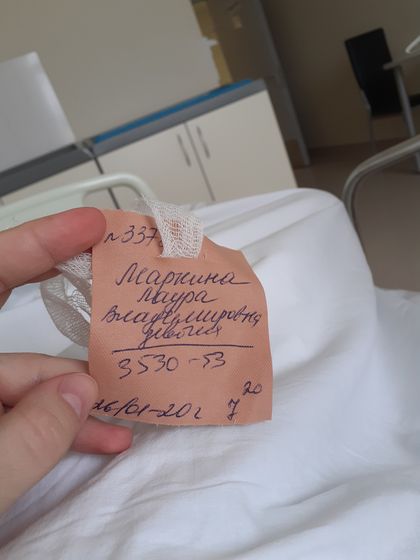 n337
Маркина
Лаура
Владимировна
девочка
3530-53
26/01-20г 7 20